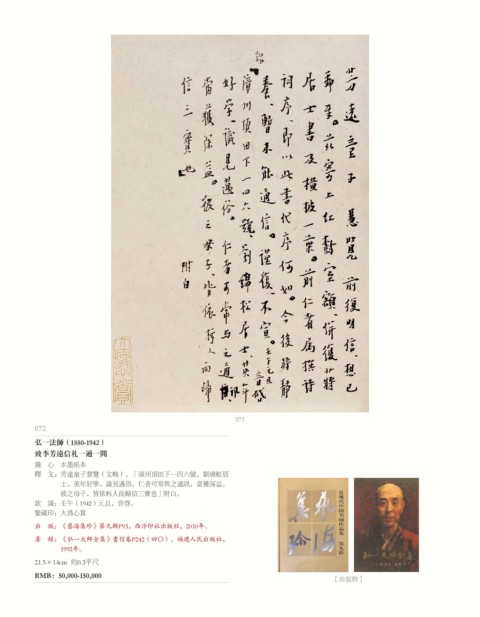 芳遠童子 慧覽 前復明信、想已
居士書及橫披一葉。前仁者屬撰詩
詞序、即以此書代序何如。今後將靜
養、暫未能通信。謹復、不宣。壬午元旦 音啓
漳州頂田下一四六號、劉綿松居士、英年
好學、識見邁俗。仁者可常與之通訊
當獲深益。彼之母子、皆依朽人而歸
信三寶也 附白
072
072
弘一法師（1880-1942）
致李芳遠信札一通一開
鏡 心 水墨紙本
釋 文：芳遠童子慧覽（文略）。「漳州頂田下一四六號，劉綿松居
士，英年好學，識見邁俗。仁者可常與之通訊，當獲深益。
彼之母子，皆依朽人而歸信三寶也」附白。
款 識：壬午（1942）元旦，音啓。
鑒藏印：大爲心賞
出 版：《藝海集珍》第九輯P93，西泠印社出版社，2010年。
著 錄：《弘一大師全集》書信卷P242（四〇），福建人民出版社，
1992年。
21.5×14cm 約0.3平尺
RMB: 50,000-150,000
近現代中國書畫作品集 第九輯
弘一大師全集
［出版物］